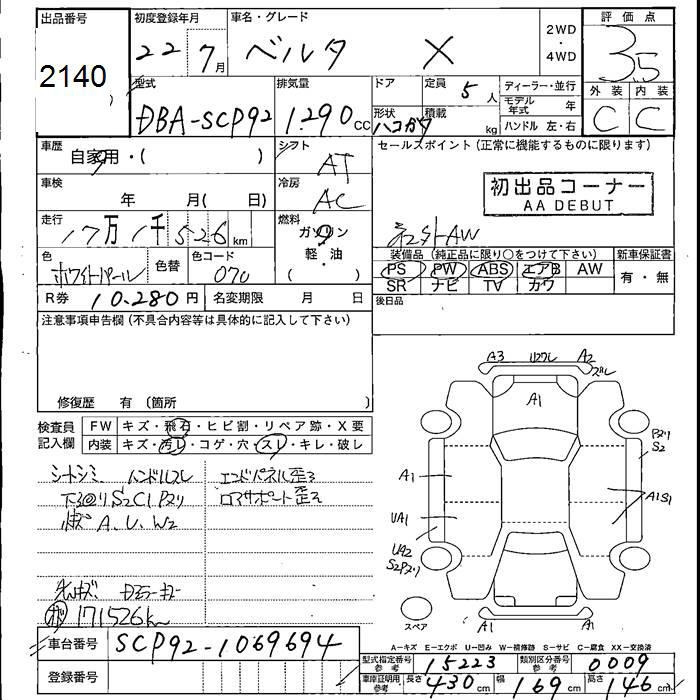 出品番号
2140
)
初度登録年月
22 7月
車名・グレード
ベルタ X
2WD
・
4WD
評価点
3.5
外装 内装
C C
型式
DBA-SCP92
排気量
1.290cc
ドア
定員
5人
形状
ハコガタ
積載
kg
ディーラー・並行
モデル年式 年
ハンドル 左・右
車歴
自家用・( )
シフト
AT
セールスポイント(正常に機能するものに限ります)
初出品コーナー
AA DEBUT
車検
年 月( 日)
冷房
AC
走行
17万1千526km
燃料
ガソリン
軽・油
( )
社外AW
色
ホワイトパール
色替
色コード
070
装備品(純正品に限り○をつけて下さい)
新車保証書
PS PW ABS エアB AW
SR ナビ TV カワ
有・無
R券 10.280円
名変期限 月 日
後日品
注意事項申告欄(不具合内容等は具体的に記入して下さい)
修復歴 有 (箇所 )
検査員
記入欄
FW キズ・飛石・ヒビ割・リペア跡・X要
内装 キズ・汚レ・コゲ・穴・スレ・キレ・破レ
シートシミ ハンドルスレ
エンドパネル歪ミ
S2C1
ロアサポート歪ミ
A.U.W2
171526km
車台番号 SCP92-1069694
登録番号
A3 A2
ズレ
A1
A1
UA1
UA2
A1S1
S2
A1 A1
スペア
A-キズ E-エクボ U-凹み W-補修跡 S-サビ C-腐食 XX-交換済
型式指定番号
参考
15223
類別区分番号
参考
0009
車庫証明用
参考
長さ 430cm 幅 169cm 高さ 146cm